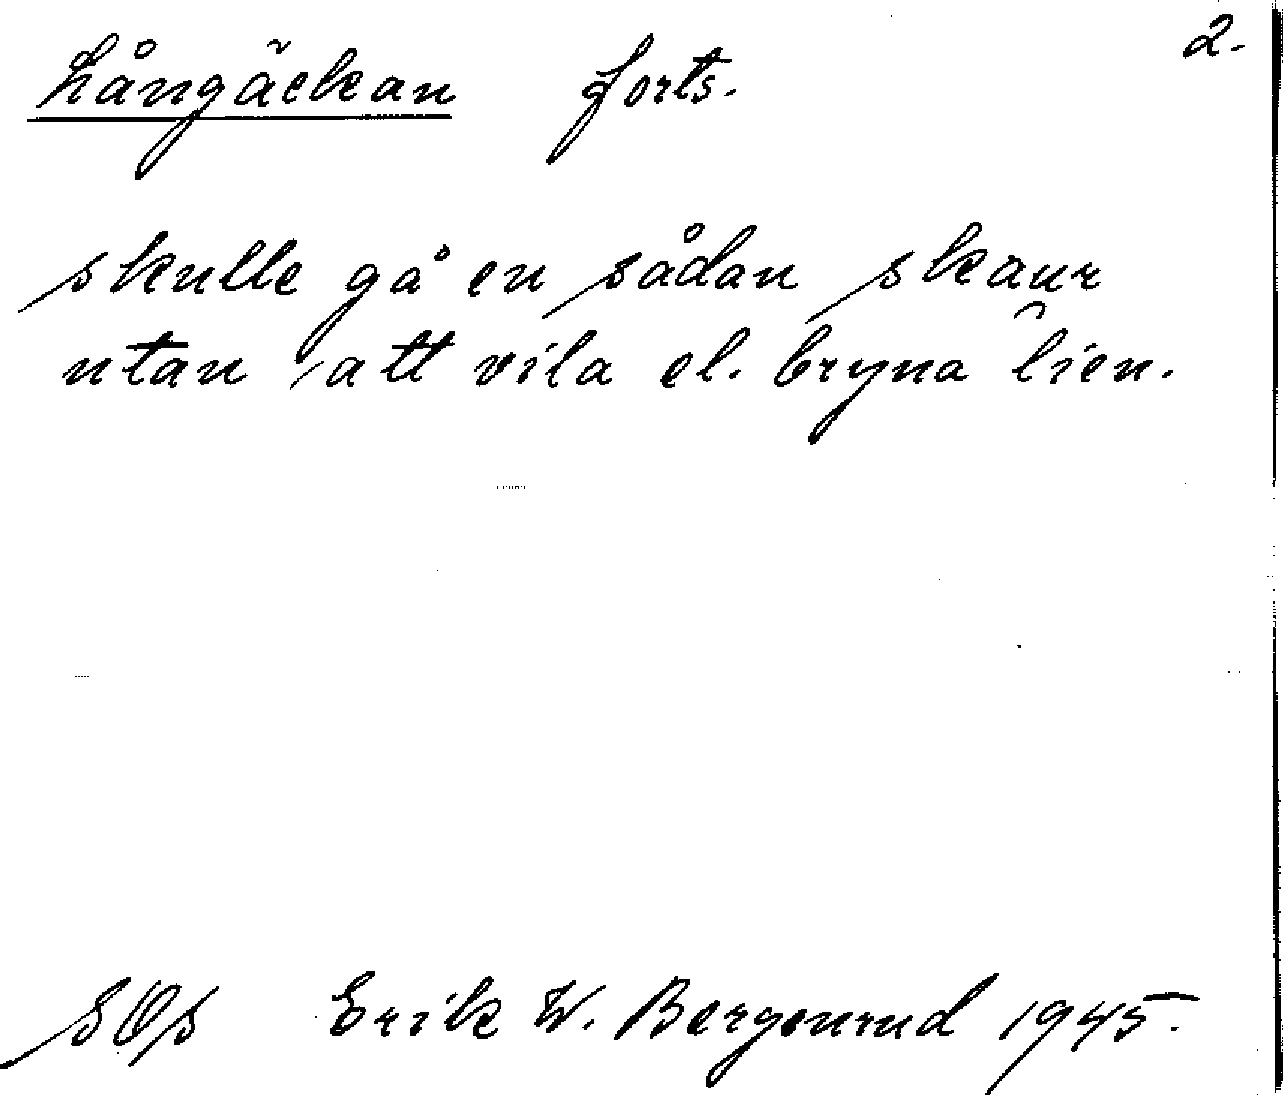 Långäckan forts. 2.
skulle gå en sådan skaur
utan att vila el. bryna lien.
SOs Erik W. Bergenrud 1945.